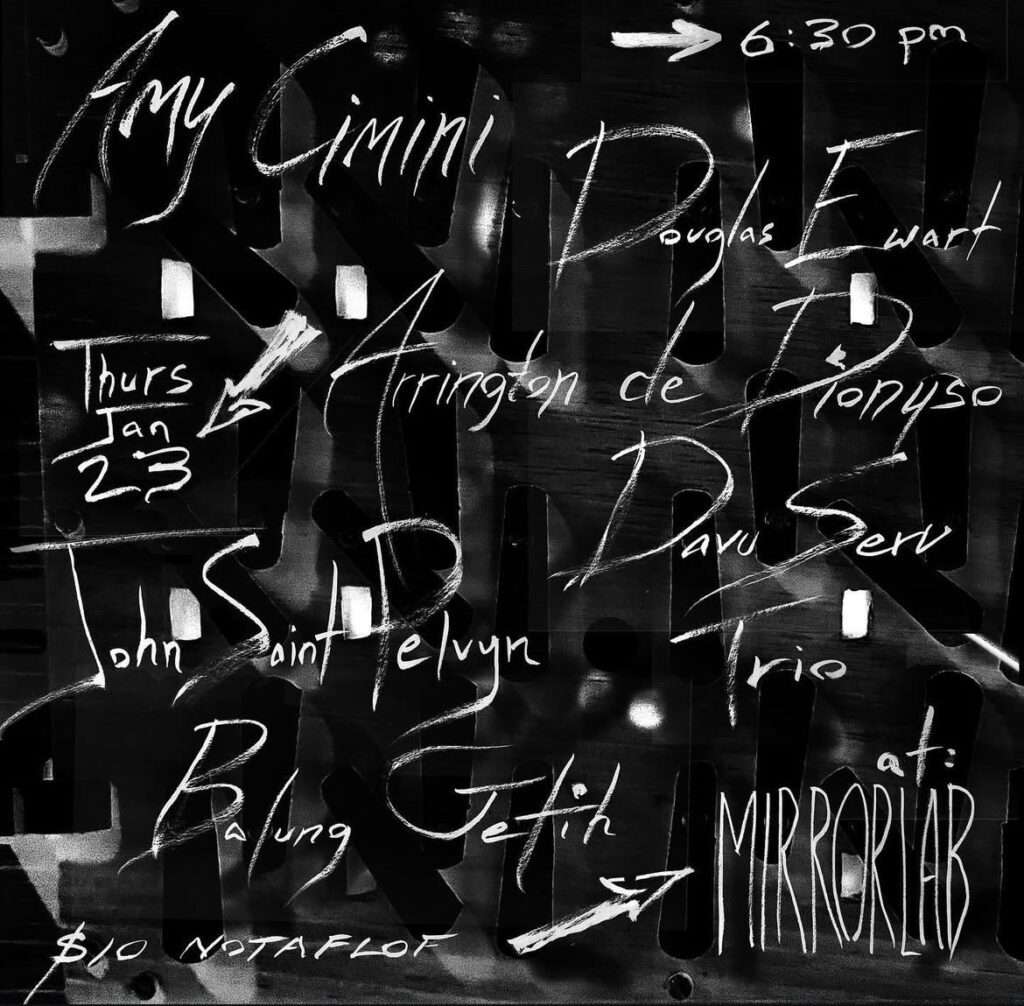 6:30 pm
Amy Cimini
Douglas Ewart
Arrington de Dionyso
Thurs
Jan
23
Davu Seru
Trio
John Saint Pelvyn
Balung Getih
at:
MIRRORLAB
$10 NOTAFLOF